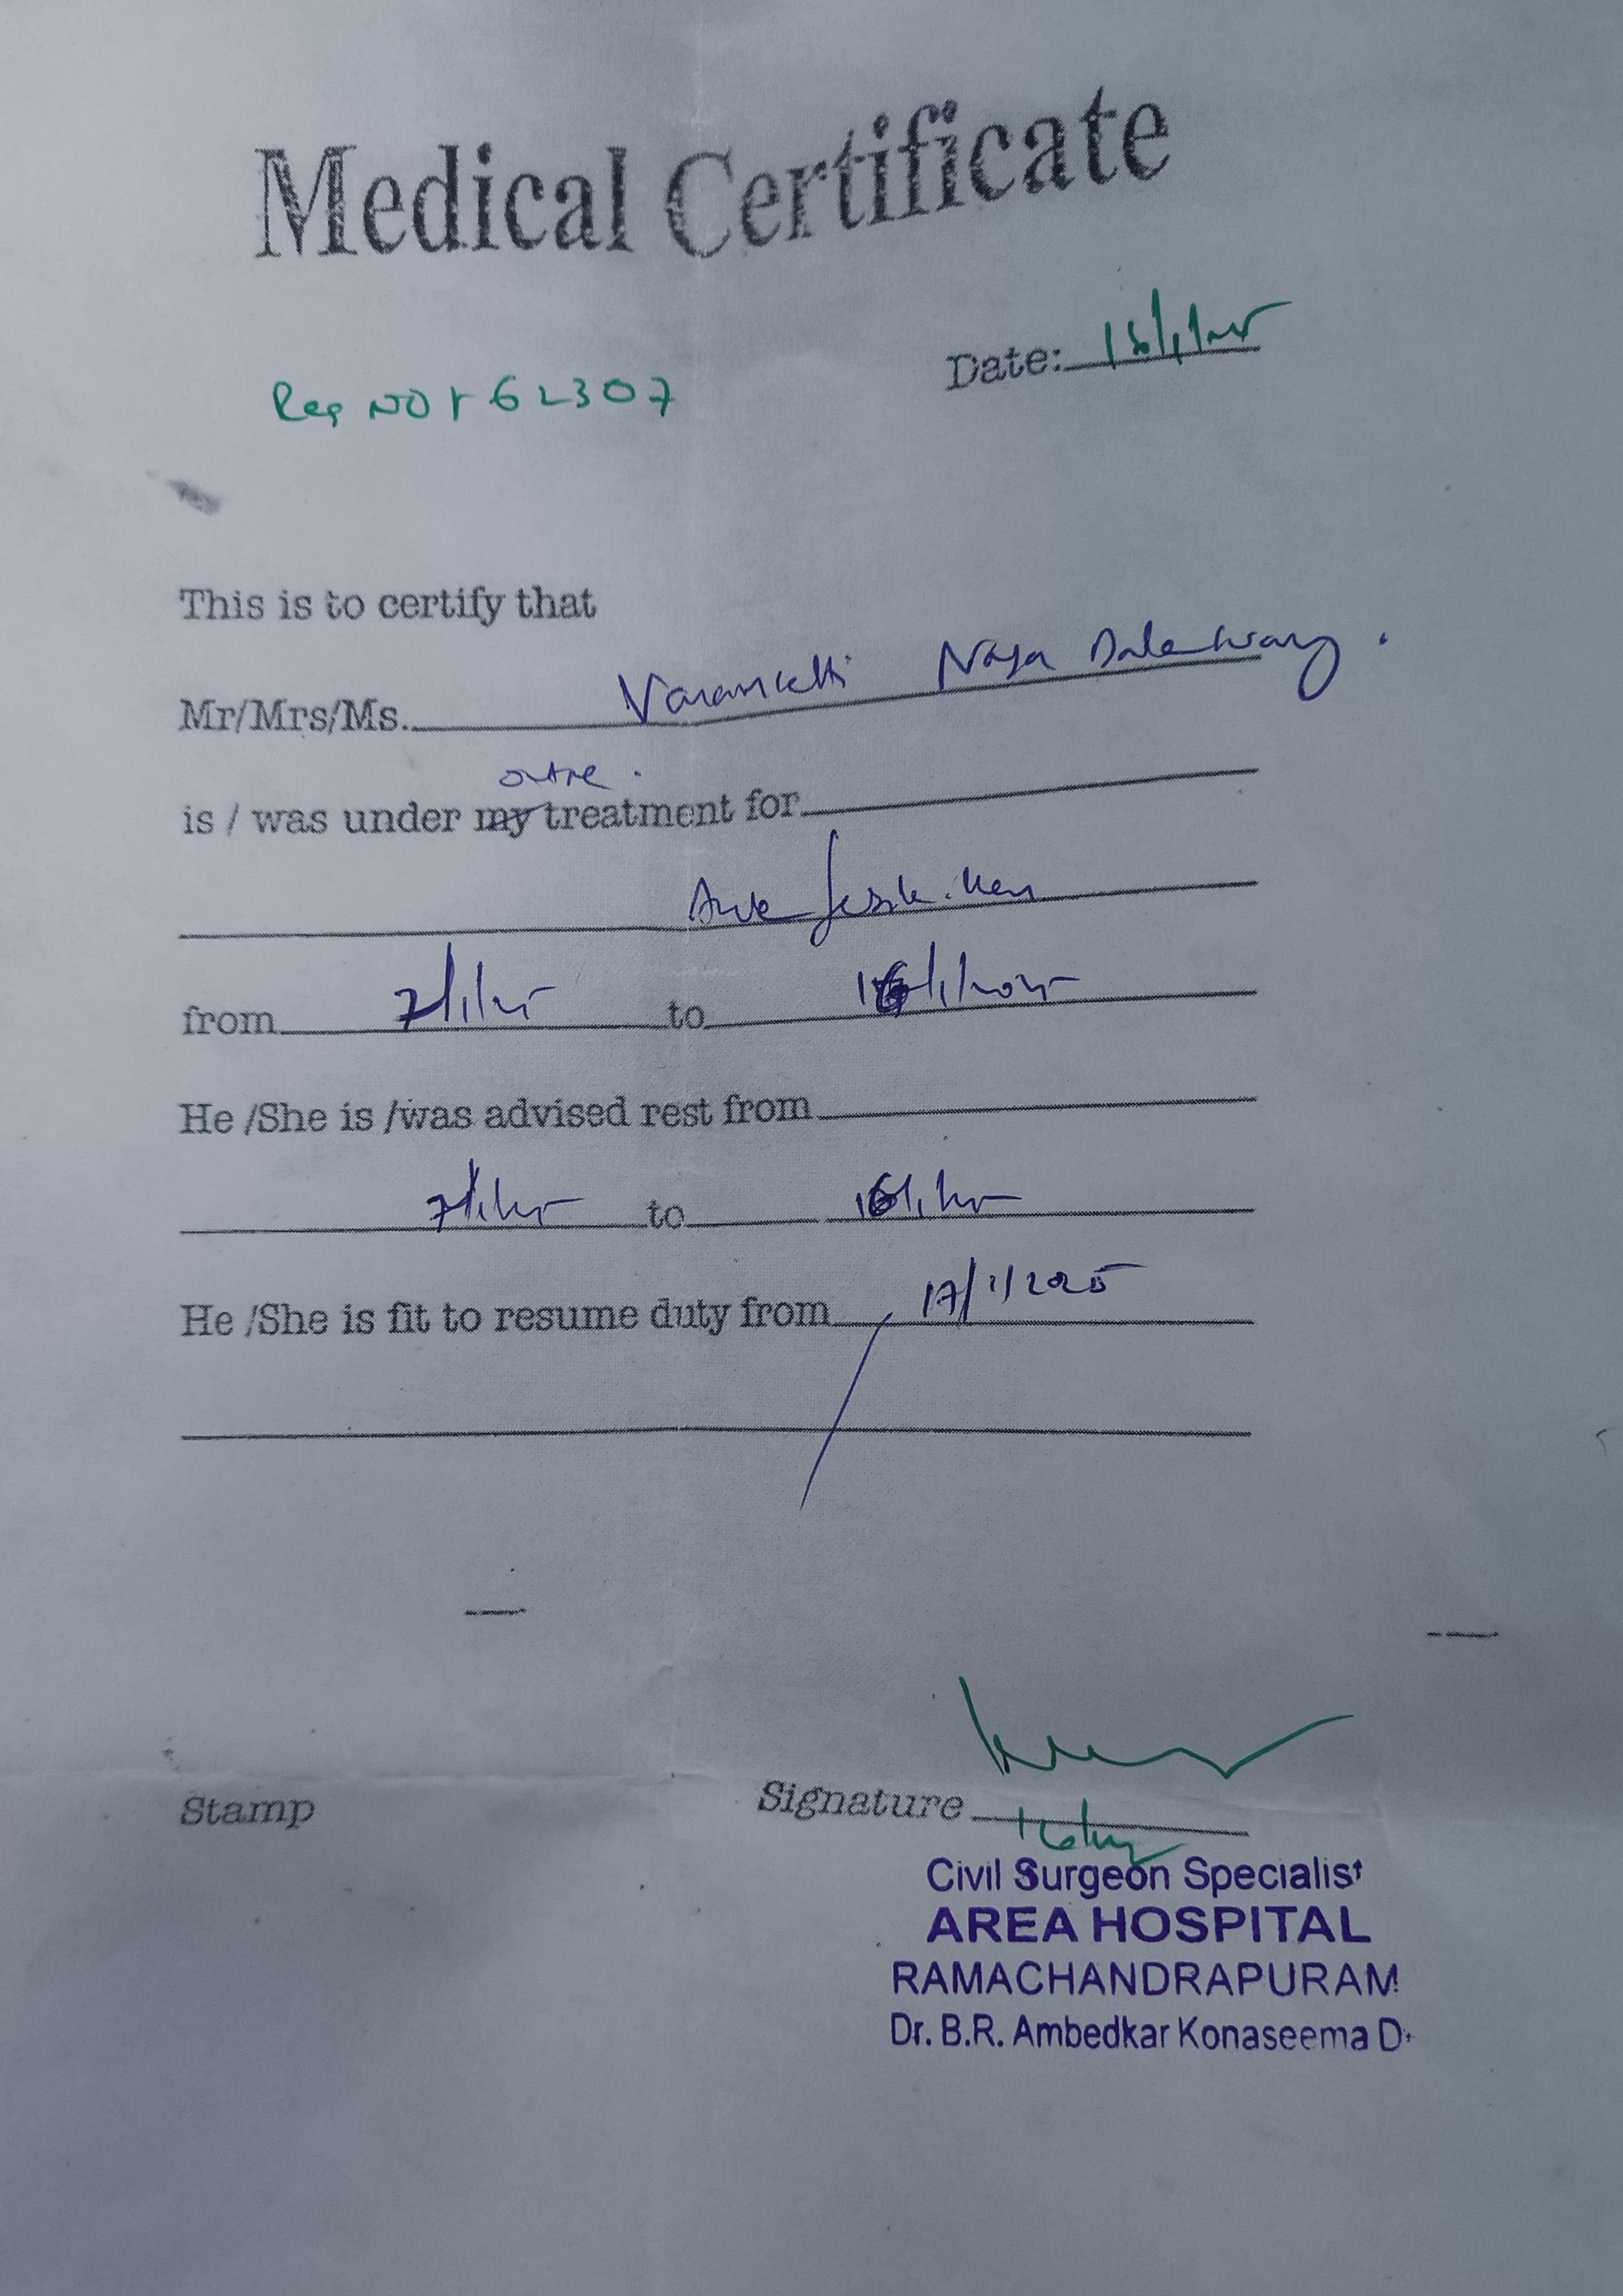 Medical Certificate
Date:
Reg NO: 62307
This is to certify that
Mr/Mrs/Ms. Naga
is / was under my treatment for
from 7/1/25 to 16/1/2025
He /She is /was advised rest from
7/1/25 to 16/1/25
He /She is fit to resume duty from 17/1/2025
Stamp
Signature
Civil Surgeon Specialist
AREA HOSPITAL
RAMACHANDRAPURAM
Dr. B.R. Ambedkar Konaseema D